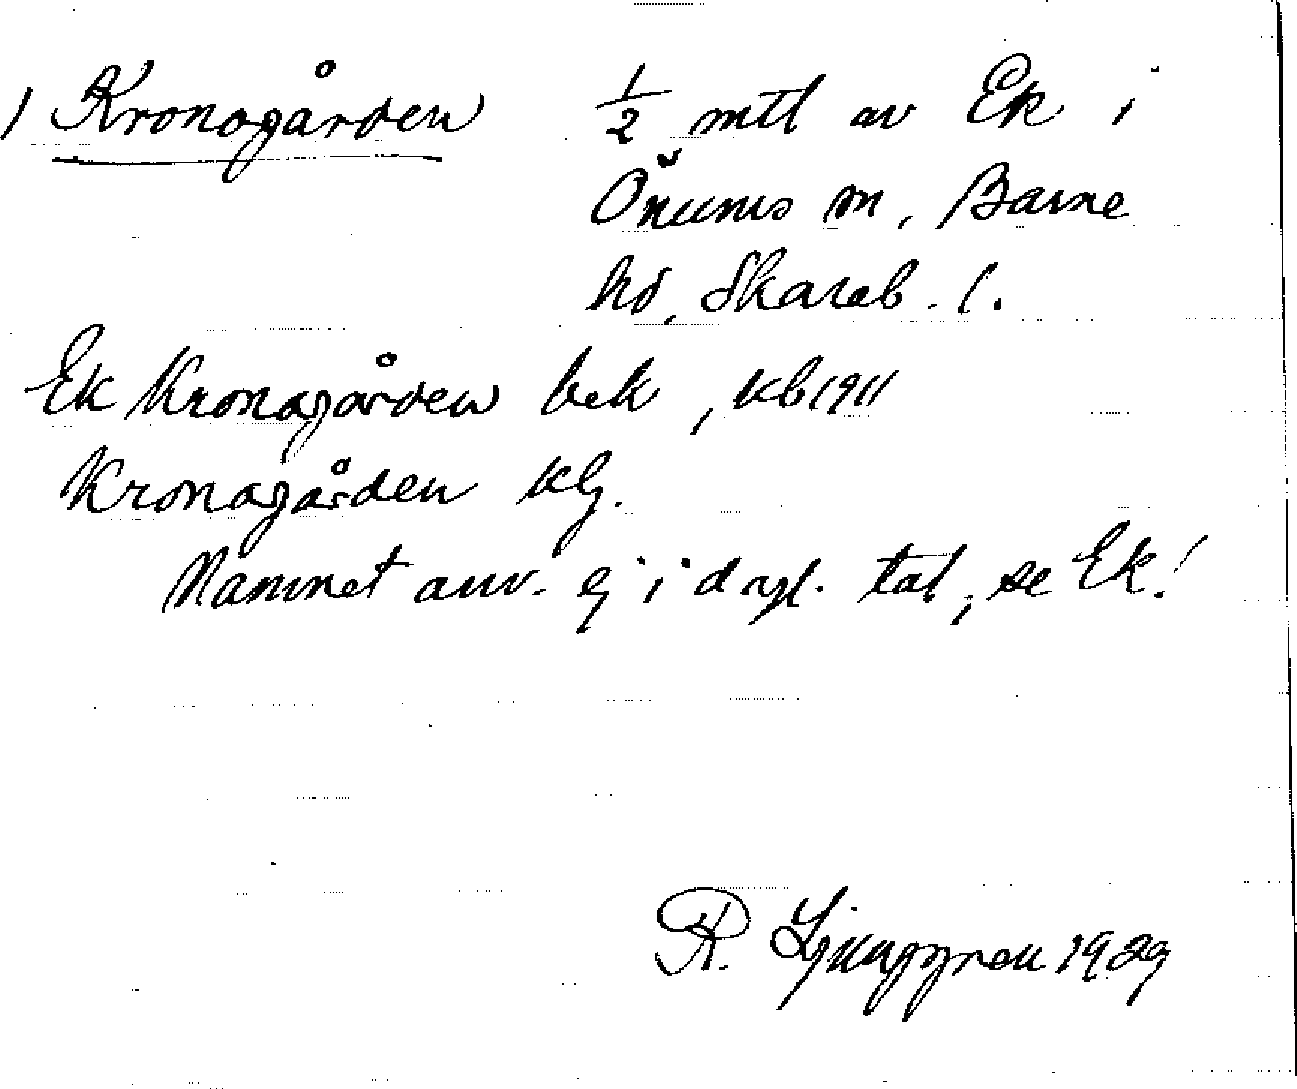 1) Kronogården ½ mtl av Ek i
Önums sn, Barne
hd, Skarab. l.
Ek Kronagården bek, kb 1911
Kronagården klg.
Namnet anv. ej i dagl. tal, se Ek!
R. Ljunggren 1929